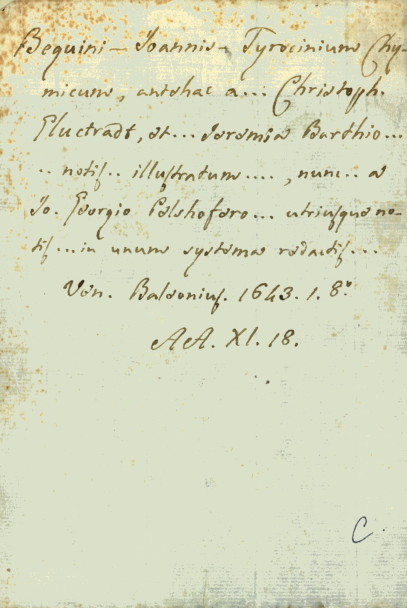 Beguini – Joannis – Tyrocinium Chy-
micum, antehac a... Christoph.
Gluctradt, et... Jeremia Barthio...
.. notis.. illustratum...., nunc.. a
Jo. Georgio Pelshofero... utriusque no-
tis... in unum systema redactis...
Ven. Baleonius. 1643. 1. 8°.
AA. XI. 18.
C.